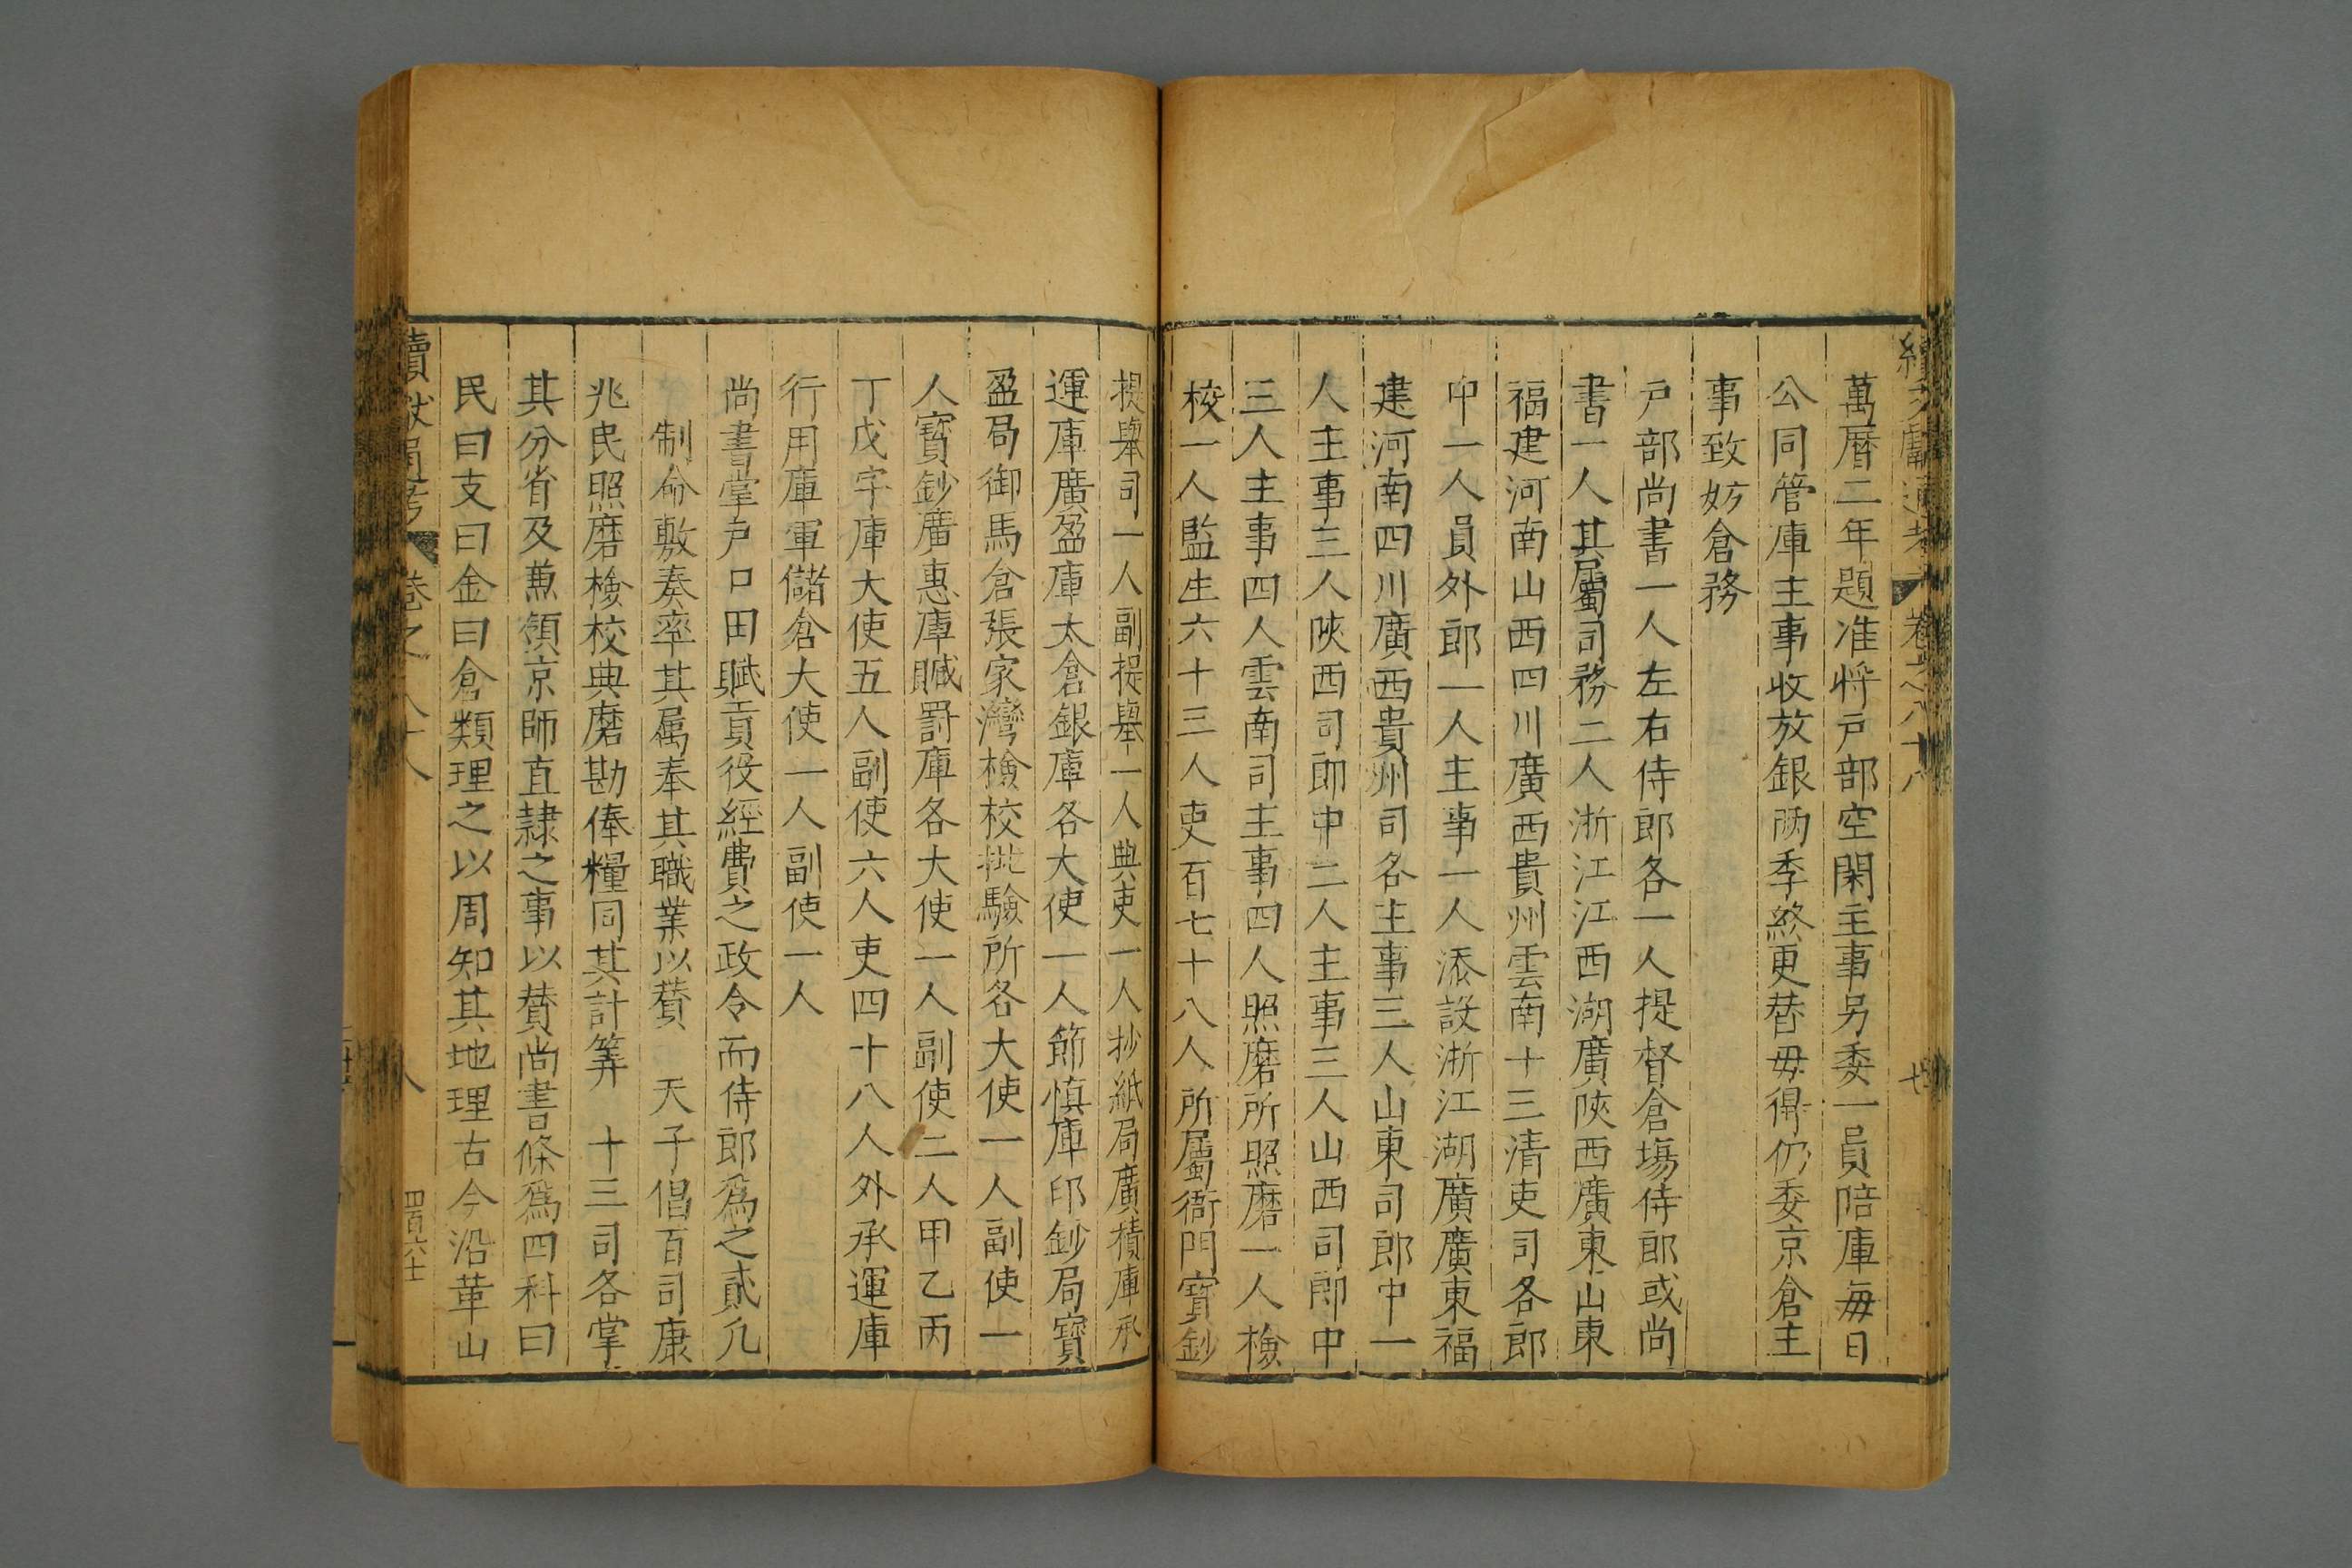 續文獻通考 卷之八十八 七
萬曆二年題准將戸部空閑主事另委一員陪庫每日
公同管庫主事收放銀兩季終更替毋得仍委京倉主
事致妨倉務
戸部尚書一人左右侍郎各一人提督倉塲侍郎或尚
書一人其屬司務二人浙江江西湖廣陝西廣東山東
福建河南山西四川廣西貴州雲南十三清吏司各郎
中一人員外郎一人主事一人添設浙江湖廣廣東福
建河南四川廣西貴州司各主事三人山東司郎中一
人主事三人陝西司郎中二人主事三人山西司郎中
三人主事四人雲南司主事四人照磨所照磨一人檢
校一人監生六十三人吏百七十八人所屬衙門寳鈔
提舉司一人副提舉一人典吏一人抄紙局廣積庫承
運庫廣盈庫太倉銀庫各大使一人節慎庫印鈔局寳
盈局御馬倉張家灣檢校批驗所各大使一人副使一
人寳鈔廣惠庫贓罰庫各大使一人副使二人甲乙丙
丁戊字庫大使五人副使六人吏四十八人外承運庫
行用庫軍儲倉大使一人副使一人
尚書掌戸口田賦貢役經費之政令而侍郎爲之貳凡
制命敷奏率其属奉其職業以賛 天子倡百司康
兆民照磨檢校典磨勘俸糧同其計筭 十三司各掌
其分省及兼領京師直隷之事以賛尚書條爲四科曰
民曰支曰金曰倉類理之以周知其地理古今沿革山
續文獻通考 卷之八十八 八 四百六十